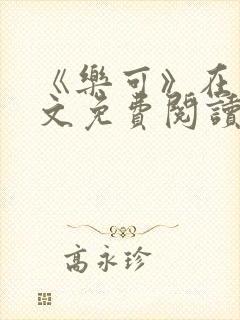 《樂可》在
文免費閱讀
高永珍